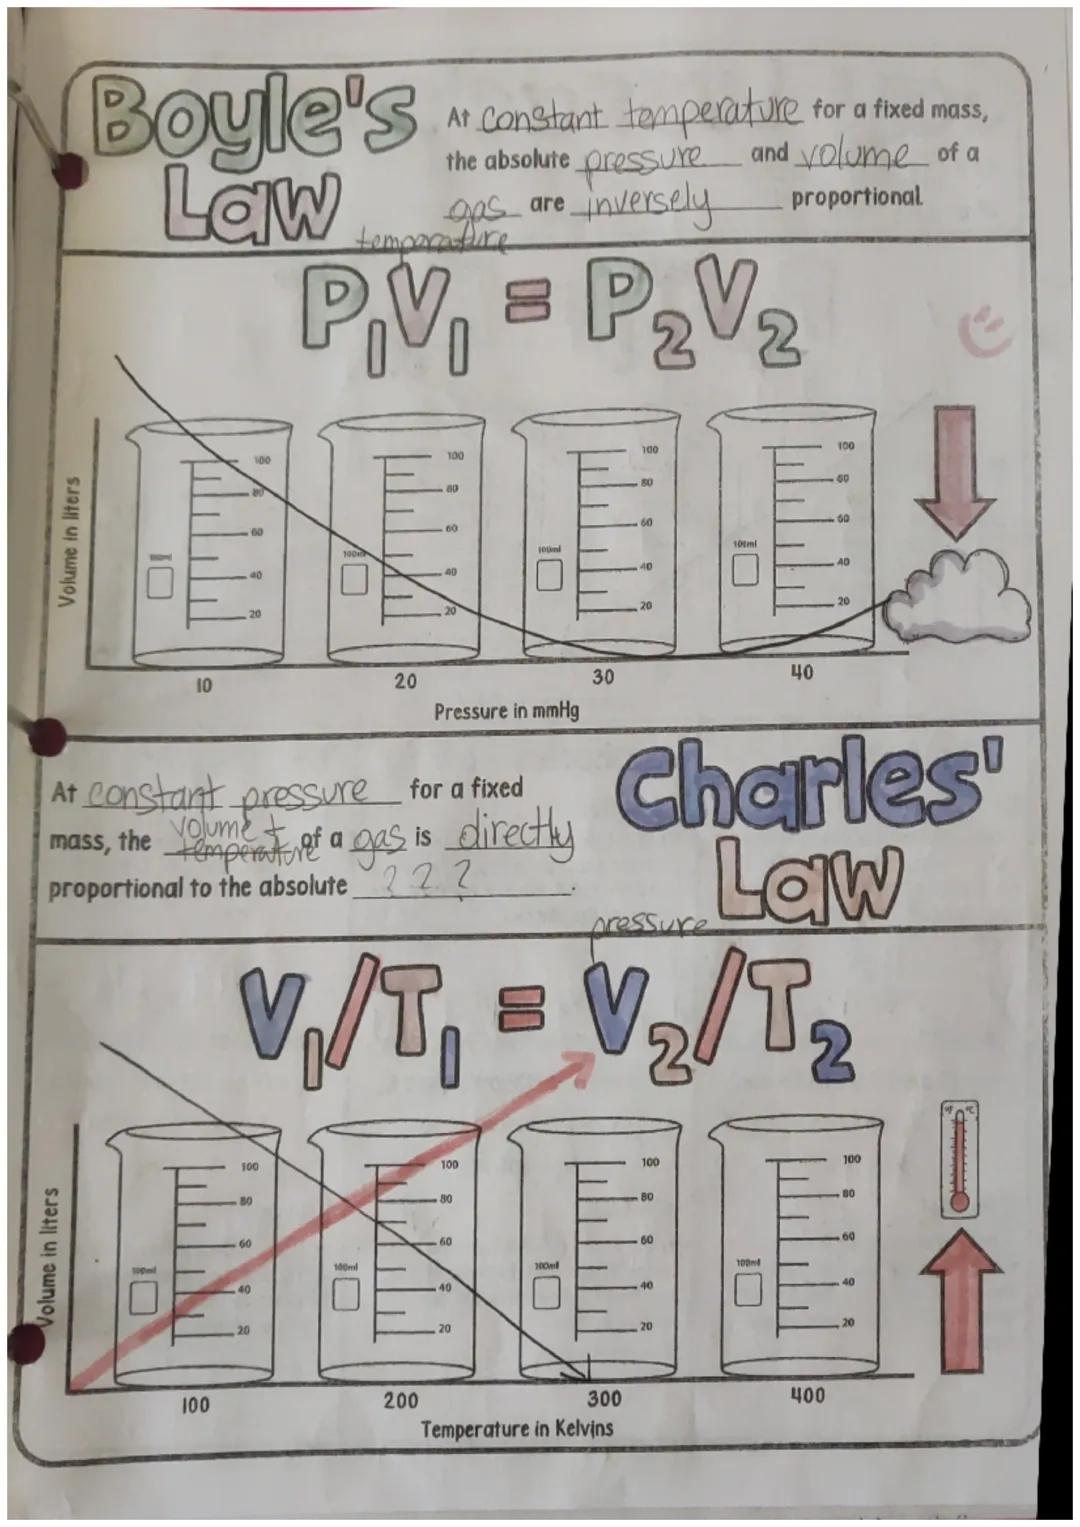 Boyle's
Law
At constant temperature for a fixed mass,
the absolute pressure and volume of a
gas are inversely proportional.
temperature
P₁V₁ = P₂V₂
Volume in liters
100
80
60
40
20
100ml
100
80
60
40
20
100ml
100
80
60
40
20
100ml
100
60
60
40
20
100ml
10 20 30 40
Pressure in mmHg
At constant pressure for a fixed
mass, the volume + temperature of a gas is directly
proportional to the absolute ???.
Charles'
Law
pressure
V₁/T₁ = V₂/T₂
Volume in liters
100
80
60
40
20
100ml
100
80
60
40
20
100ml
100
80
60
40
20
100ml
100
80
60
40
20
100ml
°F °C
100 200 300 400
Temperature in Kelvins